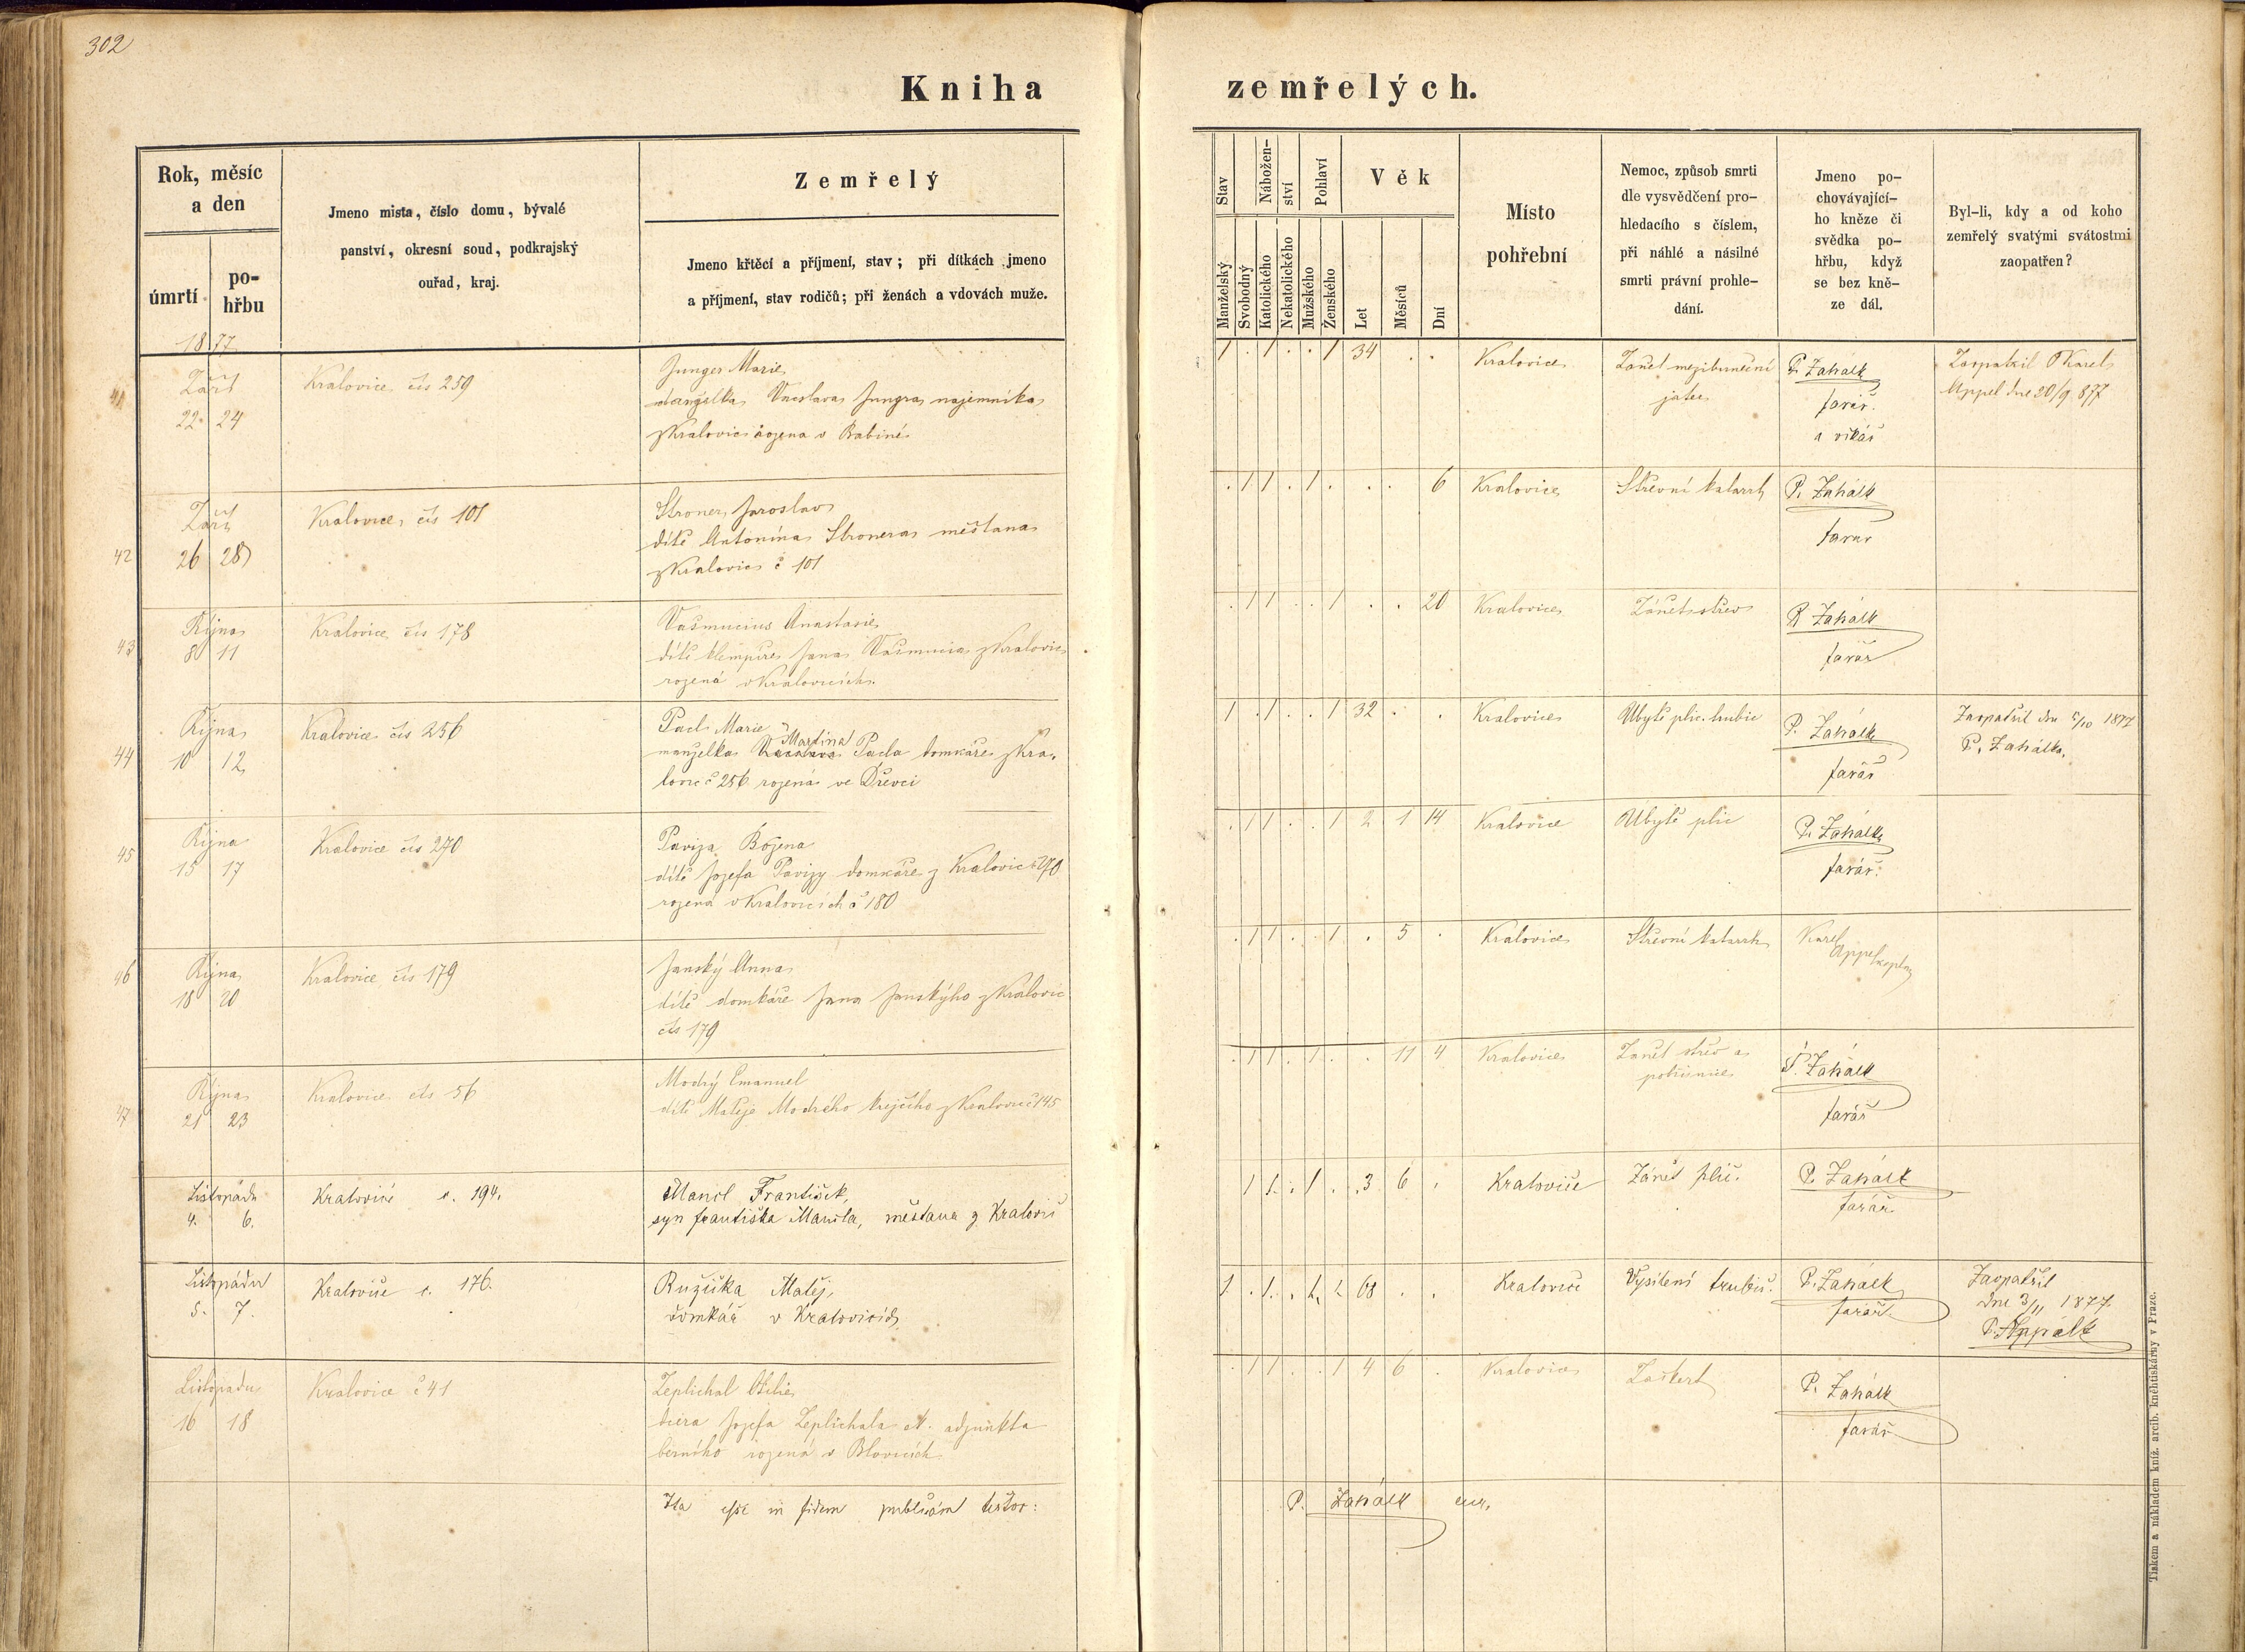 302
Kniha zemřelých.
Rok, měsíc
a den
úmrtí
po-
hřbu
Jmeno mista, číslo domu, bývalé
panství, okresní soud, podkrajský
ouřad, kraj.
Zemřelý
Jmeno křtěcí a příjmení, stav; při dítkách jmeno
a příjmení, stav rodičů; při ženách a vdovách muže.
Stav
Manželský
Svobodný
Nábožen-
ství
Katolického
Nekatolického
Pohlaví
Mužského
Ženského
Věk
Let
Měsíců
Dní
Místo
pohřební
Nemoc, způsob smrti
dle vysvědčení pro-
hledacího s číslem,
při náhlé a násilné
smrti právní prohle-
dání.
Jmeno po-
chovávající-
ho kněze či
svědka po-
hřbu, když
se bez kně-
ze dál.
Byl-li, kdy a od koho
zemřelý svatými svátostmi
zaopatřen?
1877
41
Září
22 24
Kralovice čis 259
Junger Marie
manželka Vácslava Jungra najemníka
z Kralovic rozena v Babině
1 . 1 . . 1 34 . .
Kralovice
Zánět mezibuněční
jater
P. Zahálk
farář
a vikář
Zaopatřil P Karel
Appel dne 20/9 877
42
Září
26 28
Kralovice čis 101
Stroner Jaroslav
dítě Antonína Stronera měšťana
z Kralovic č 101
. 1 1 . 1 . . . 6
Kralovice
Střevní katarrh
P. Zahálk
farář
43
Října
8 11
Kralovice čis 178
Vašmucius Anastasie
dítě klempíře Jana Vašmucia z Kralovic
rozená v Kralovicích
. 1 1 . . 1 . . 20
Kralovice
Zánět střev
P. Zahálk
farář
44
Října
10 12
Kralovice čis 256
Pacl Marie
manželka Martina Pacla domkáře z Kra-
lovic č 256 rozená ve Dřevci
1 . 1 . . 1 32 . .
Kralovice
Úbytě plic. hubic
P. Zahálk
farář
Zaopatřil dne 5/10 1877
P. Zahálka
45
Října
15 17
Kralovice čis 270
Paviza Božena
dítě Jozefa Pavizy domkáře z Kralovic č 270
rozená v Kralovicích č 180
. 1 1 . . 1 2 1 14
Kralovice
Úbytě plic
P. Zahálk
farář
46
Října
18 20
Kralovice čis 179
Janský Anna
dítě domkáře Jana Janskýho z Kralovic
čis 179
. 1 1 . . 1 . 5 .
Kralovice
Střevní katarrh
Karel
Appel kaplan
47
Října
21 23
Kralovice čis 56
Modrý Emanuel
dítě Matěje Modrého krejčího z Kralovic č 145
. 1 1 . 1 . . 11 4
Kralovice
Zanět střev a
pobřišnice
P. Zahálk
farář
Listopadu
4. 6.
Kralovice č. 194.
Mancl František,
syn františka Mancla, měšťana z Kralovic
1 1 . 1 . 3 6 .
Kralovice
Zánět plic.
P. Zahálk
farář
Listopadu
5. 7.
Kralovice č. 176.
Ružička Matěj,
domkář v Kralovicích
1 . 1 . 1 68 . .
Kralovice
Vysílení
P. Zahálk
farář
Zaopatřil
dne 3/11 1877
Listopadu
16 18
Kralovice č 41
Zeplichal Otilie
dcera Jozefa Zeplichala adjunkta
berního rozená v Blovicích
. 1 1 . . 1 4 6 .
Kralovice
Zaškert
P. Zahálk
farář
Ita esse in fidem publicam testor:
P. Zahálk cur.
Tiskem a nákladem kníž. arcib. kněhtiskárny v Praze.